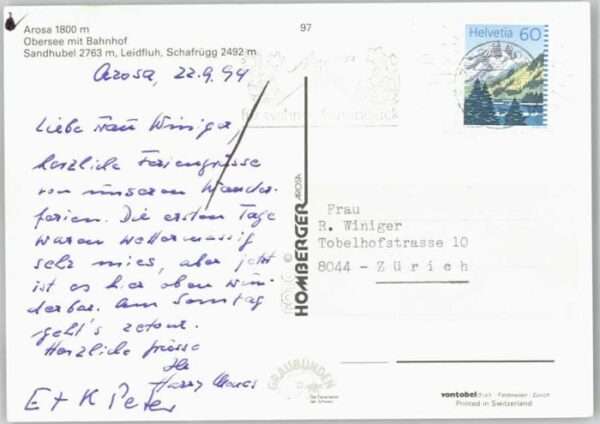 Arosa 1800 m
Obersee mit Bahnhof
Sandhubel 2763 m, Leidfluh, Schafrügg 2492 m
97
Helvetia 60
Arosa, 22.9.94
Liebe Frau Winiger,
herzliche Feriengrüsse
von unseren Wander-
ferien. Die ersten Tage
waren wettermässig
sehr mies, aber jetzt
ist es hier oben wun-
derbar. Am Sonntag
geht's retour.
Herzliche Grüsse
Ihr
Harry
E + K Peter
Frau
R. Winiger
Tobelhofstrasse 10
8044 - Zürich
FOTO © HOMBERGER AROSA
GRAUBÜNDEN
Die Ferienecke
der Schweiz
vontobel
Printed in Switzerland